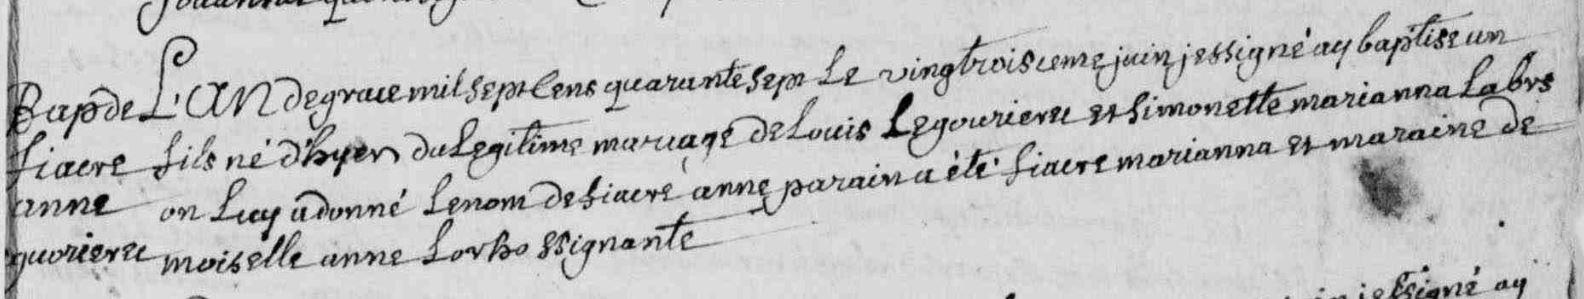 Bap de L'AN de grace mil sept Cens quarante sept Le vingtroisieme juin je ssigné ay baptise un
fiacre fils né d'hyer du Legitime mariage de Louis Legourierec et Simonette marianna Labrs
anne on Luy a donné Le nom de fiacre anne parain a été fiacre marianna et maraine de
quorierec moiselle anne Lorho ssignante
je ssigné ay